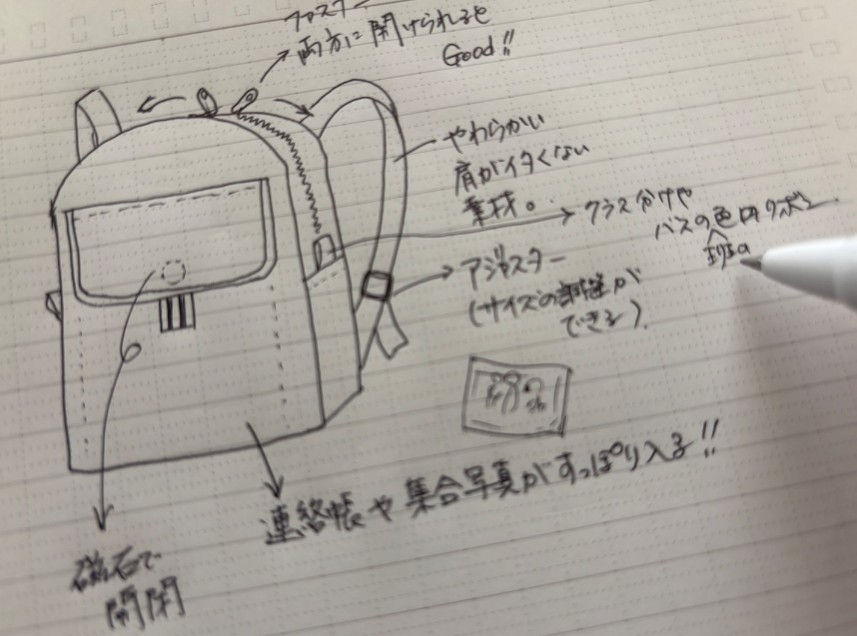 ファスナー
両方に開けられると
Good!!
やわらかい
肩がイタくない
素材。
クラス分けや
バスの色
班の
リボン
アジャスター
(サイズの調整が
できる).
連絡帳や集合写真がすっぽり入る!!
磁石で
開閉